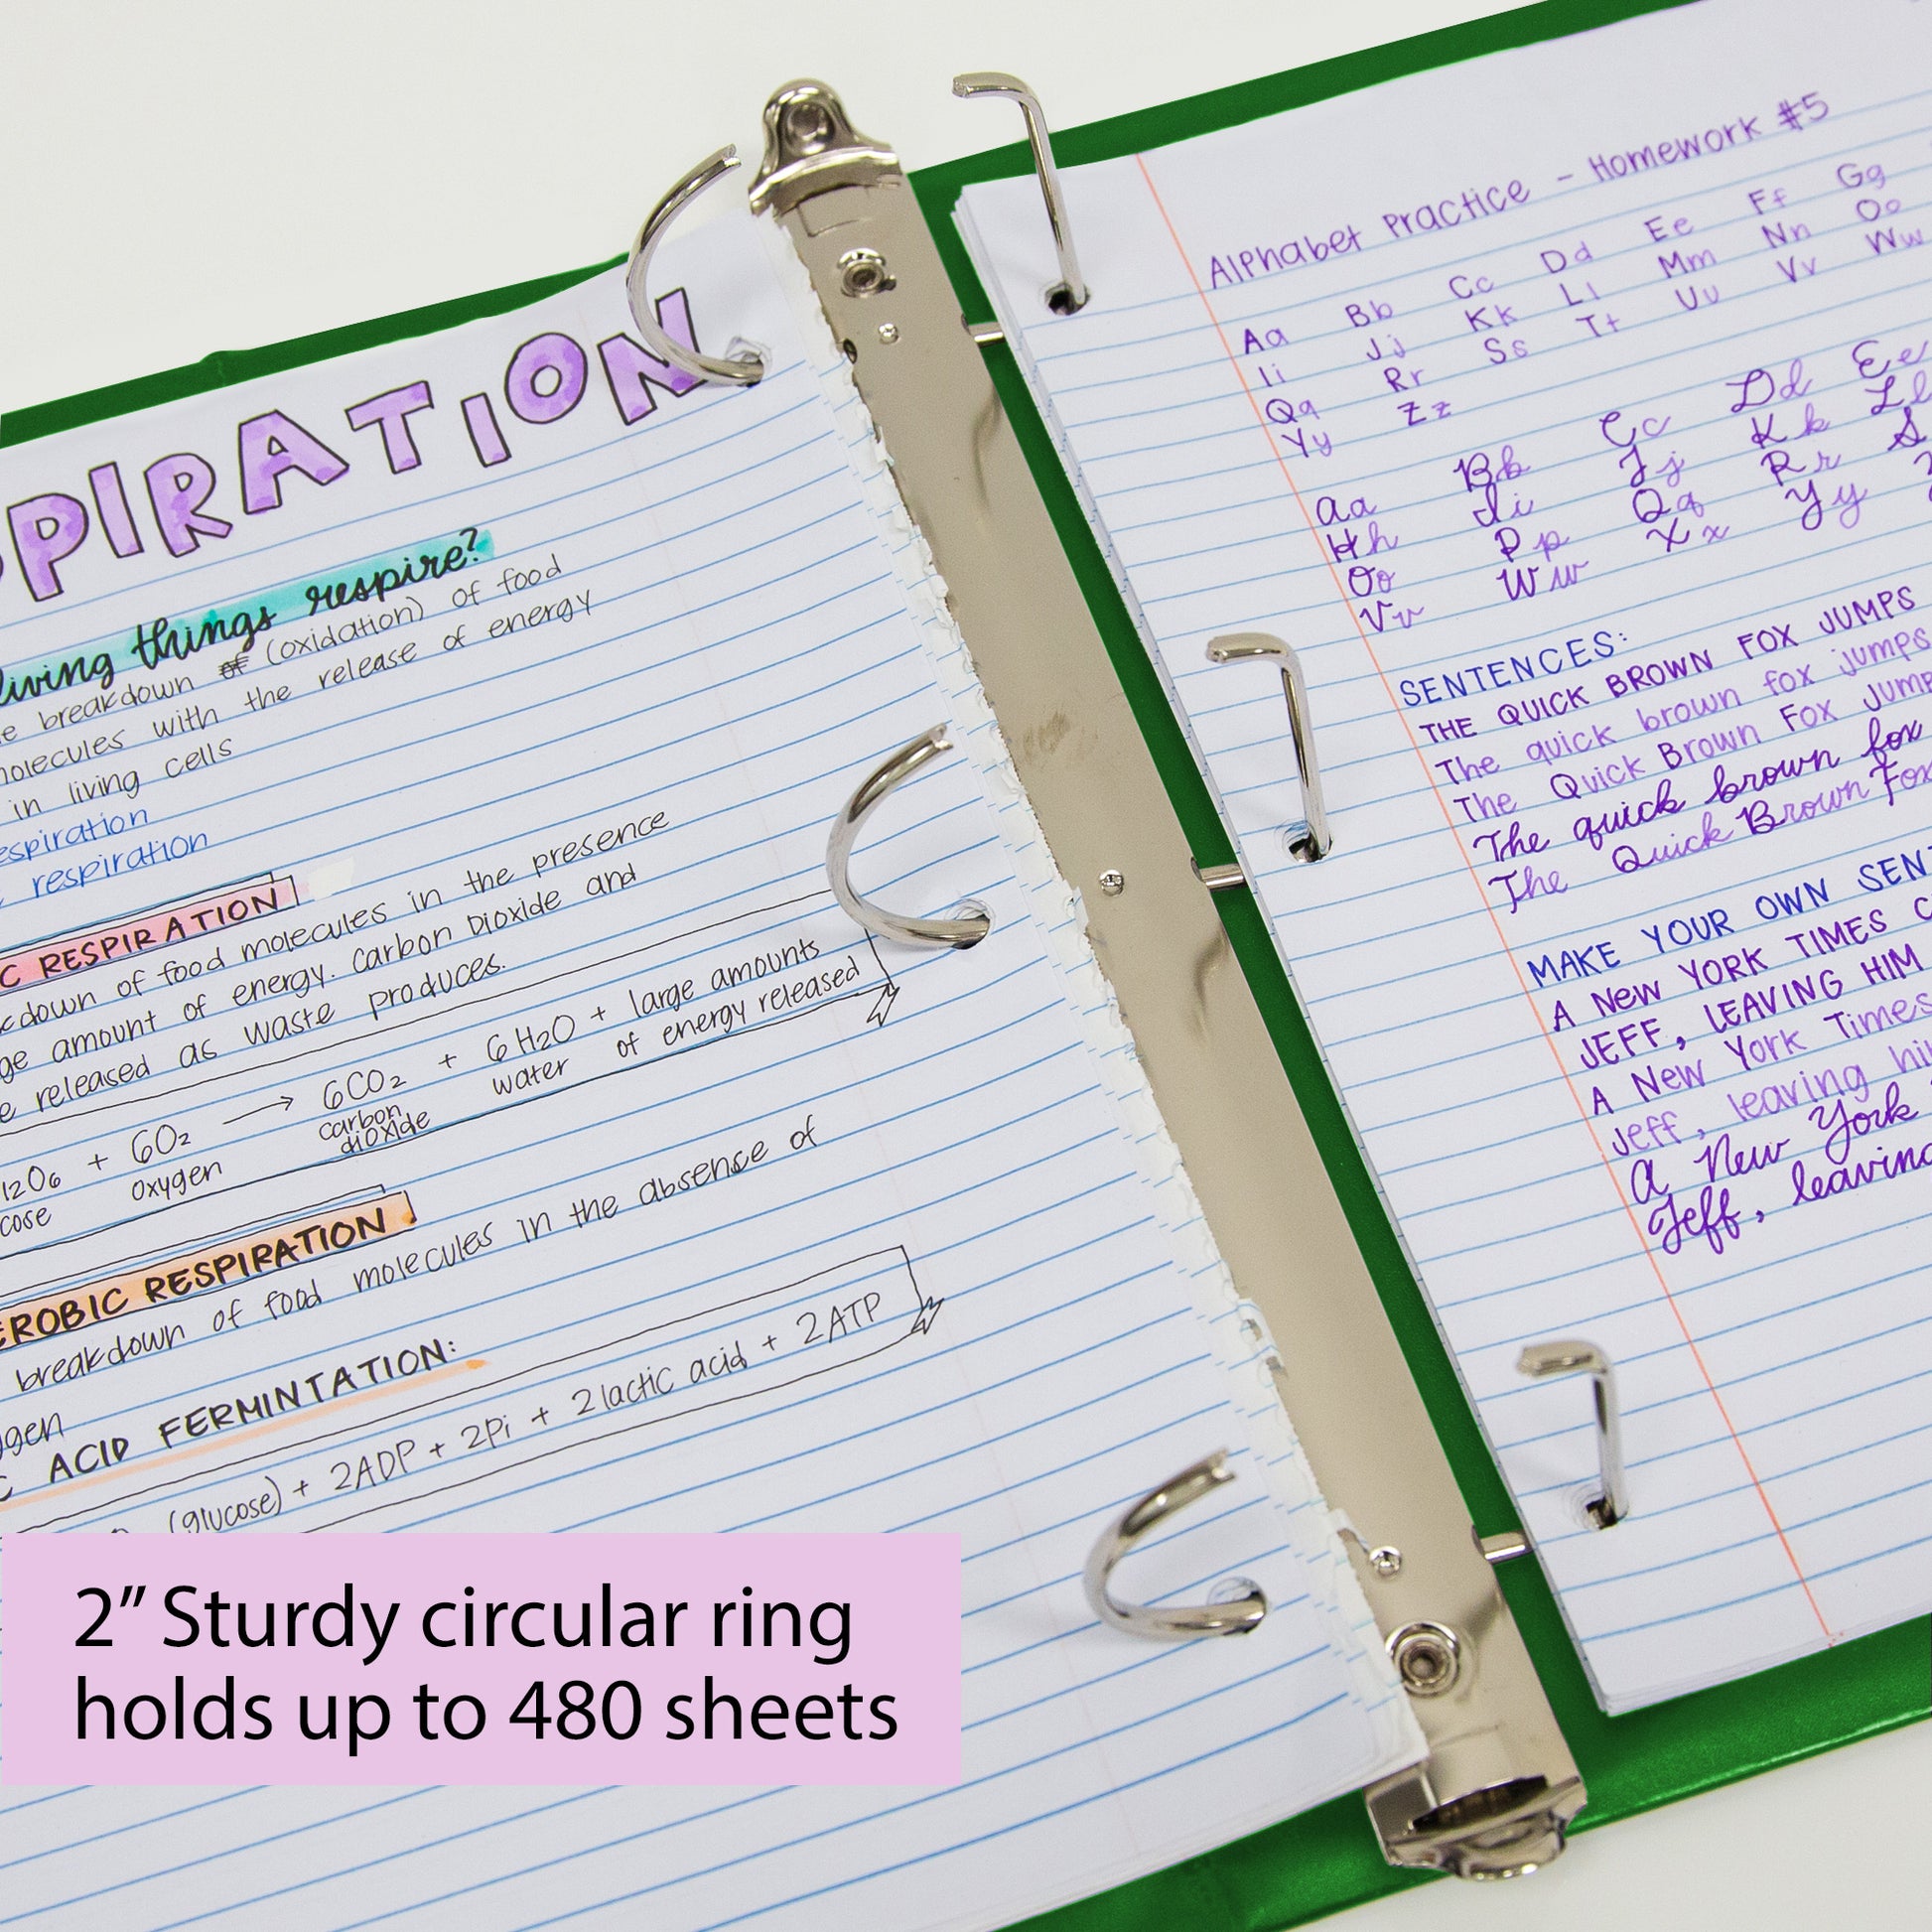 PIRATION
living things respire?
breakdown of (oxidation) of food
molecules with the release of energy
in living cells
respiration
respiration
C RESPIRATION
down of food molecules in the presence
amount of energy. carbon Dioxide and
released as waste produces.
12O6 + 6O2 → 6CO2 + 6H2O + large amounts
cose oxygen carbon dioxide water of energy released
EROBIC RESPIRATION
breakdown of food molecules in the absence of
ygen
C ACID FERMINTATION:
(glucose) + 2ADP + 2Pi + 2lactic acid + 2ATP
2” Sturdy circular ring
holds up to 480 sheets
Alphabet Practice - Homework #5
Aa Bb Cc Dd Ee Ff Gg
Ii Jj Kk Ll Mm Nn Oo
Qq Rr Ss Tt Uu Vv Ww
Yy Zz
Aa Bb Cc Dd Ee
Hh Ii Jj Kk Ll
Oo Pp Qq Rr S
Vv Ww Xx Yy
SENTENCES:
THE QUICK BROWN FOX JUMPS
The quick brown fox jumps
The Quick Brown Fox Jump
The quick brown fox
The Quick Brown Fox
MAKE YOUR OWN SENT
A New YORK TIMES C
JEFF, LEAVING HIM
A New York Times
Jeff, leaving hi
A New York
Jeff, leaving